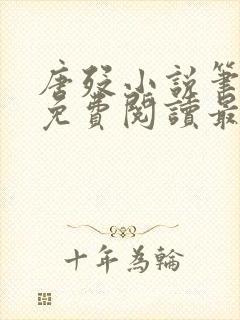 唐殁小說筆
免費閱讀最
十年為輪